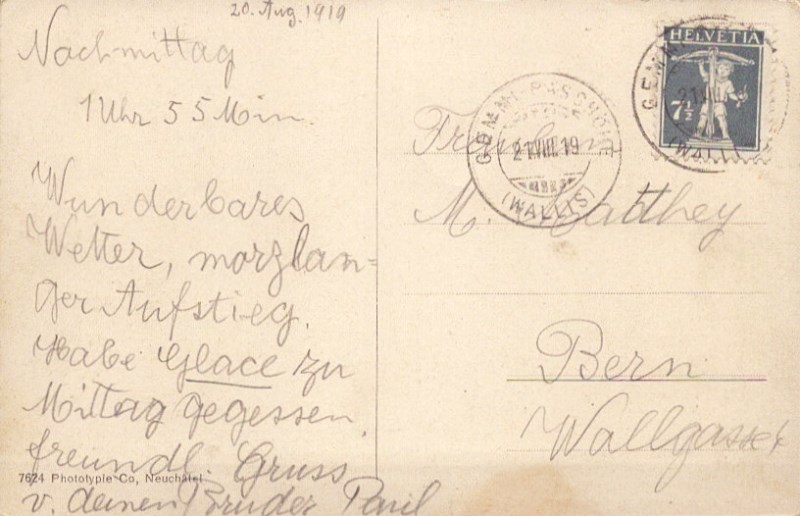 20. Aug. 1919
Nachmittag
1 Uhr 55 Min.
Wunderbares
Wetter, morzlan=
ger Aufstieg.
Habe Glace zu
Mittag gegessen.
freundl. Gruss
v. deinen Bruder Paul
7624 Phototypie Co, Neuchâtel
HELVETIA
7½
GEMMI-PASSHÖHE
21.VIII.19
(WALLIS)
GEMMI
21.VIII.
(WALLIS)
Fräulein
M. Matthey
Bern
Wallgasse